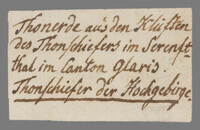 Thonerde aus den Klüften
des Thonschiefers im Serenft-
thal im Canton Glaris.
Thonschiefer der Hochgebirge.